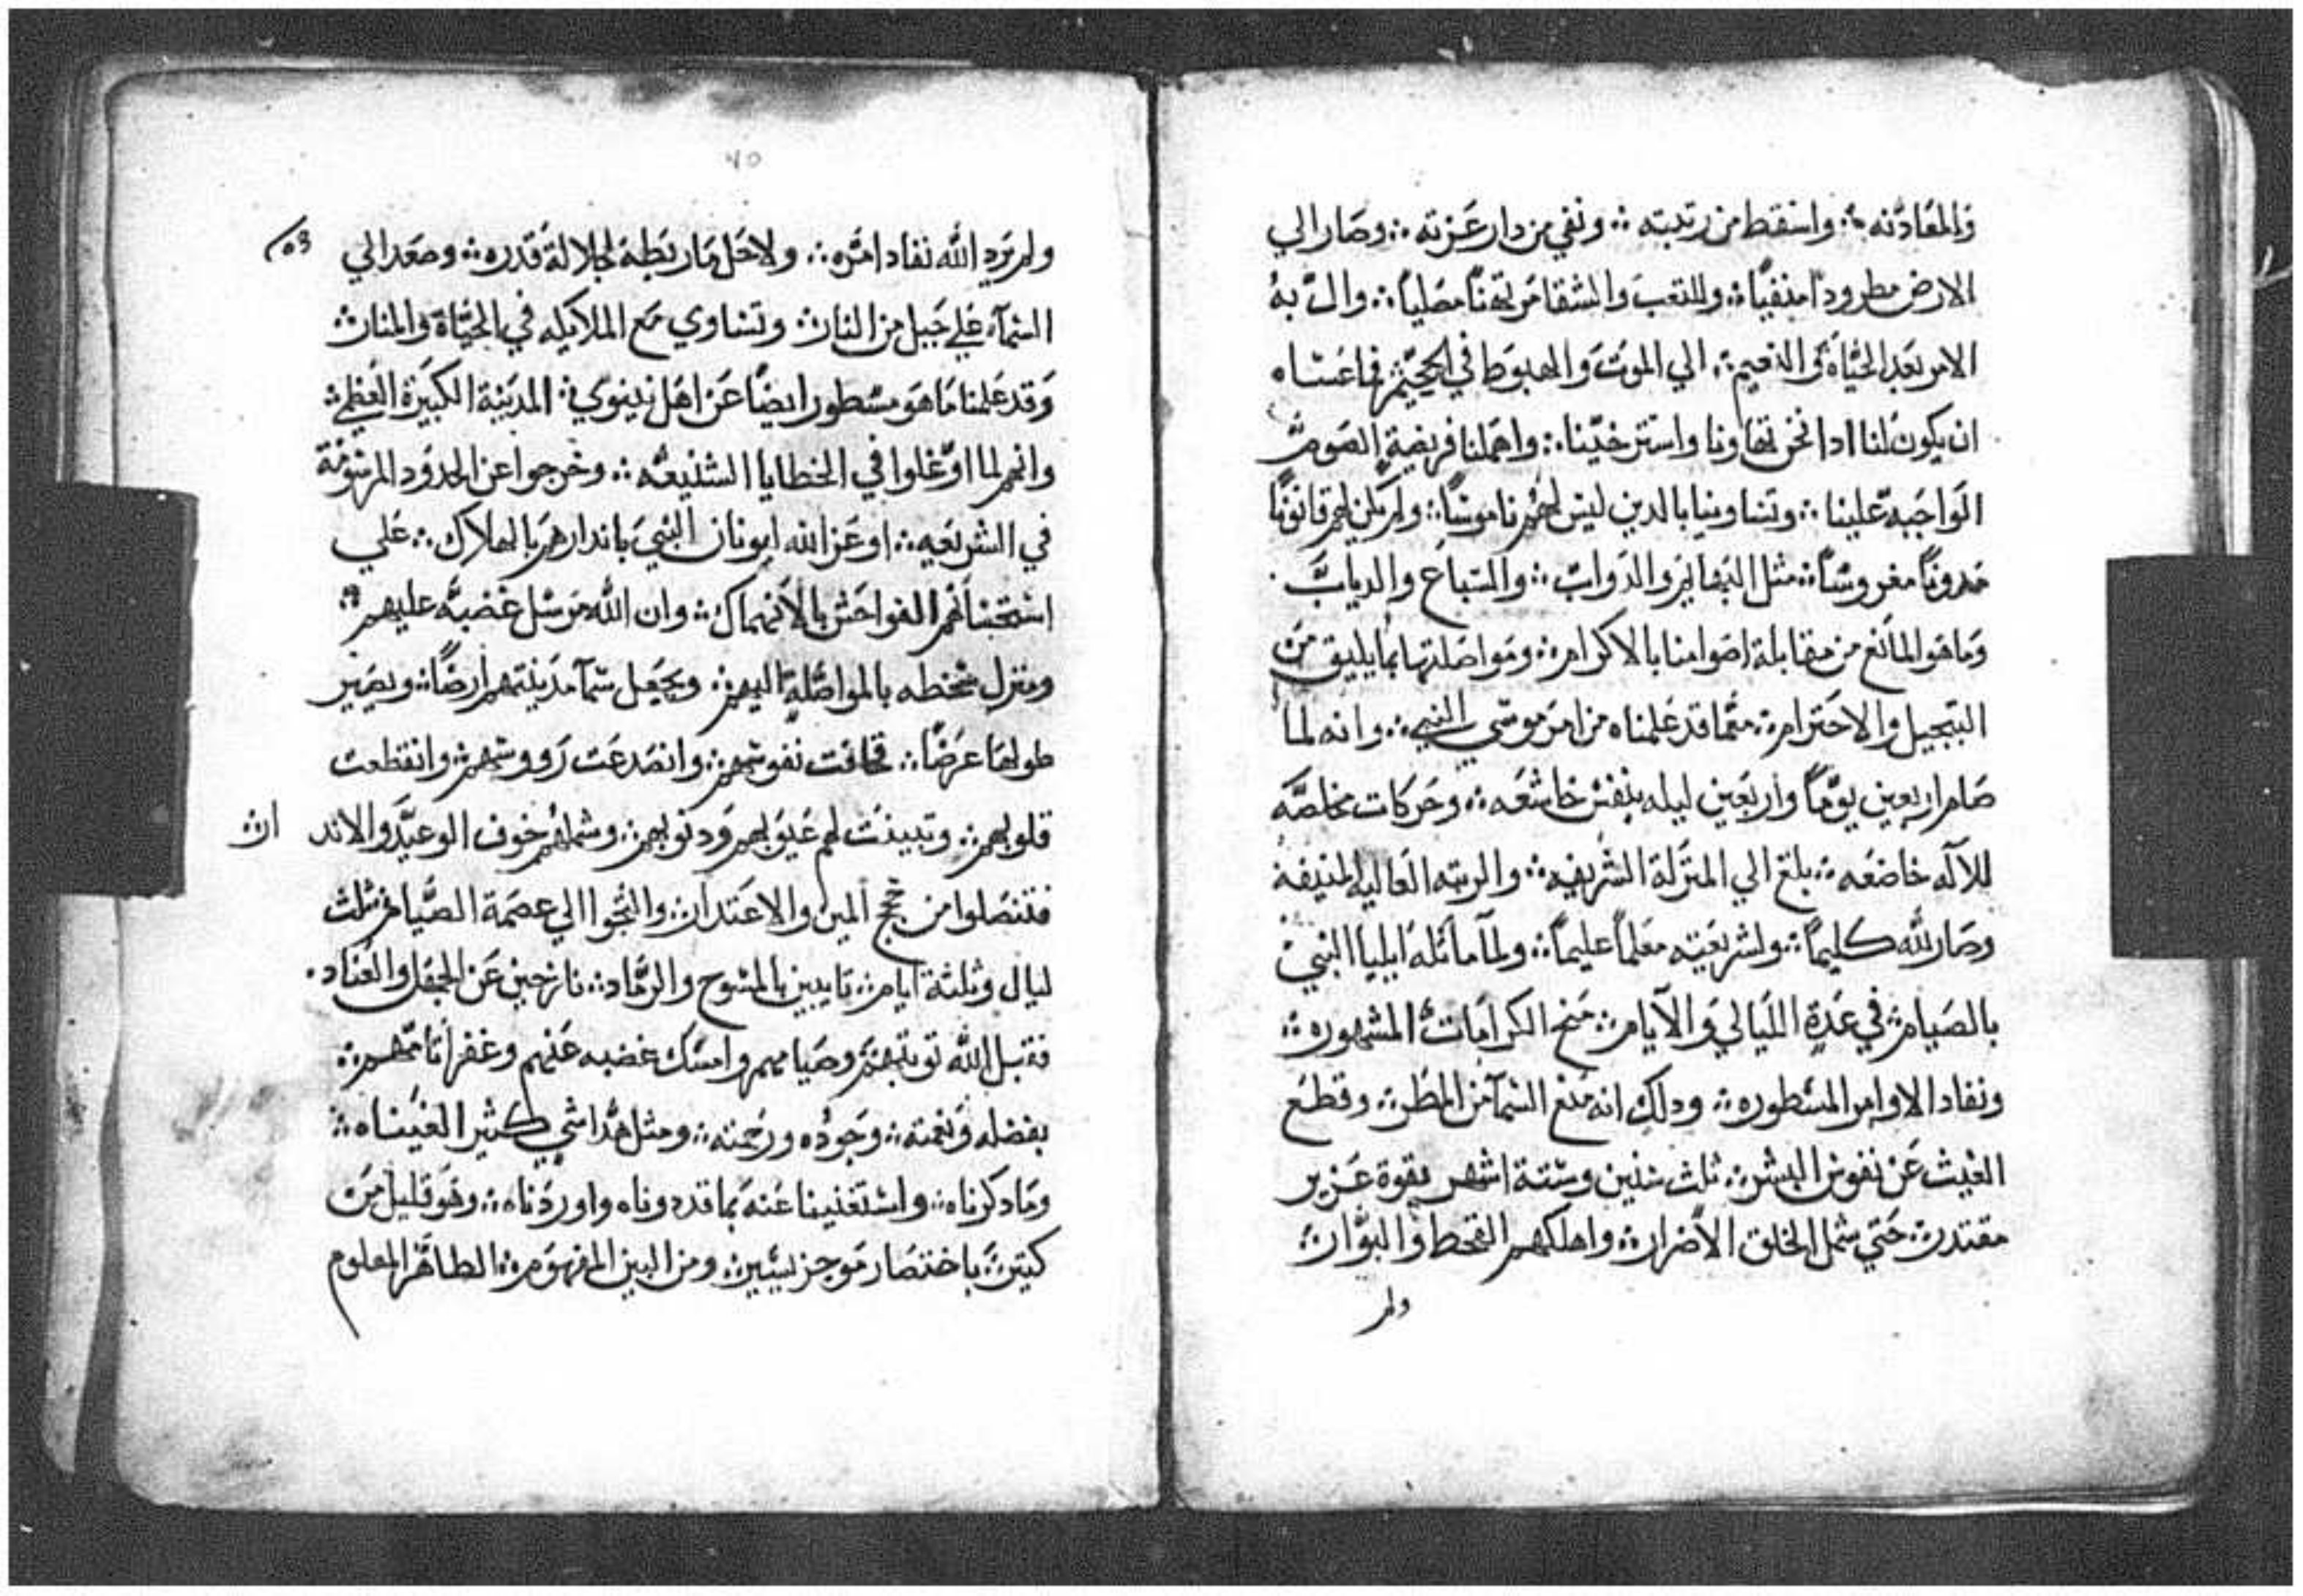 والمعادنه ؞ واسقط من رتبته ؞ ونفي من دار عزته ؞ وصار الي
الارض مطرودا منفيا ؞ وللتعب والشقا مرتهنا مصليا ؞ وال به
الامر بعد الحياة والنعيم ؞ الي الموت والهبوط في الجحيم فما عساه
ان يكون لنا ادا نحن تهاونا واسترخينا ؞ واهملنا فريضة الصوم
الواجبه علينا ؞ وتساوينا بالدين ليس لهم ناموسا ؞ ولم يكن لهم قانونا
مدونا مغروسا ؞ مثل البهايم والدواب ؞ والسباع والدياب
وما هو المانع من مقابلة اصوامنا بالاكرام ؞ ومواصلتها بما يليق من
التبجيل والاحترام ؞ مما قد علمناه من امر موسي النبي ؞ وانه لما
صام اربعين يوما واربعين ليله بنفس خاشعه ؞ وحركات مخلصه
للاله خاضعه ؞ بلغ الي المنزلة الشريفه ؞ والرتبه العاليه المنيفه
وصار لله كليما ؞ ولشريعته معلما عليما ؞ ولما ماثله ايليا النبي
بالصيام في عدة الليالي والايام ؞ منح الكرامات المشهوره ؞
ونفاد الاوامر المسطوره ؞ ودلك انه منع السما من المطر ؞ وقطع
الغيث عن نفوس البشر ؞ ثلث سنين وستة اشهر بقوة عزيز
مقتدر ؞ حتي شمل الخلق الاضرار ؞ واهلكهم القحط والبوار ؞
ولم
٧٥
ولم يرد الله نفاد امره ؞ ولا حل ما ربطه لجلالة قدره ؞ وصعد الي
السماء علي جبل من النار ؞ وتساوي مع الملايكه في الحياة والمنار ؞
وقد علمنا ما هو مسطور ايضا عن اهل نينوي ؞ المدينة الكبيرة العظمي ؞
وانهم لما اوغلوا في الخطايا الشنيعه ؞ وخرجوا عن الحدود المرسومة
في الشريعه ؞ اوعز الله ليونان النبي باندارهم بالهلاك ؞ علي
الفواحش بالانهماك ؞ وان الله مرسل غضبه عليهم ؞
ومنزل سخطه بالمواصلة اليهم ؞ ويجعل سما مدينتهم ارضا ؞ ويصير
طولها عرضا ؞ فخافت نفوسهم ؞ وانصدعت رووسهم ؞ وانقطعت
قلوبهم ؞ وتبينت لهم عيوبهم ودنوبهم ؞ وشملهم خوف الوعيد والاند ار ؞
فتنصلوا من حجج المين والاعتدار ؞ والتجوا الي عصمة الصيام ثلث
ليال وثلثة ايام ؞ تايبين بالمسوح والرماد ؞ نازحين عن الجهل والعناد ؞
فقبل الله توبتهم وصيامهم وامسك غضبه عنهم وغفر اثامهم ؞
بفضله ونعمته ؞ وجوده ورحمته ؞ ومثل هدا شي كثير الغيناه ؞
وما دكرناه ؞ واستغنينا عنه بما قد دوناه واوردناه ؞ وهو قليل من
كثير ؞ باختصار موجز يسير ؞ ومن البين المفهوم ؞ الظاهر المعلوم